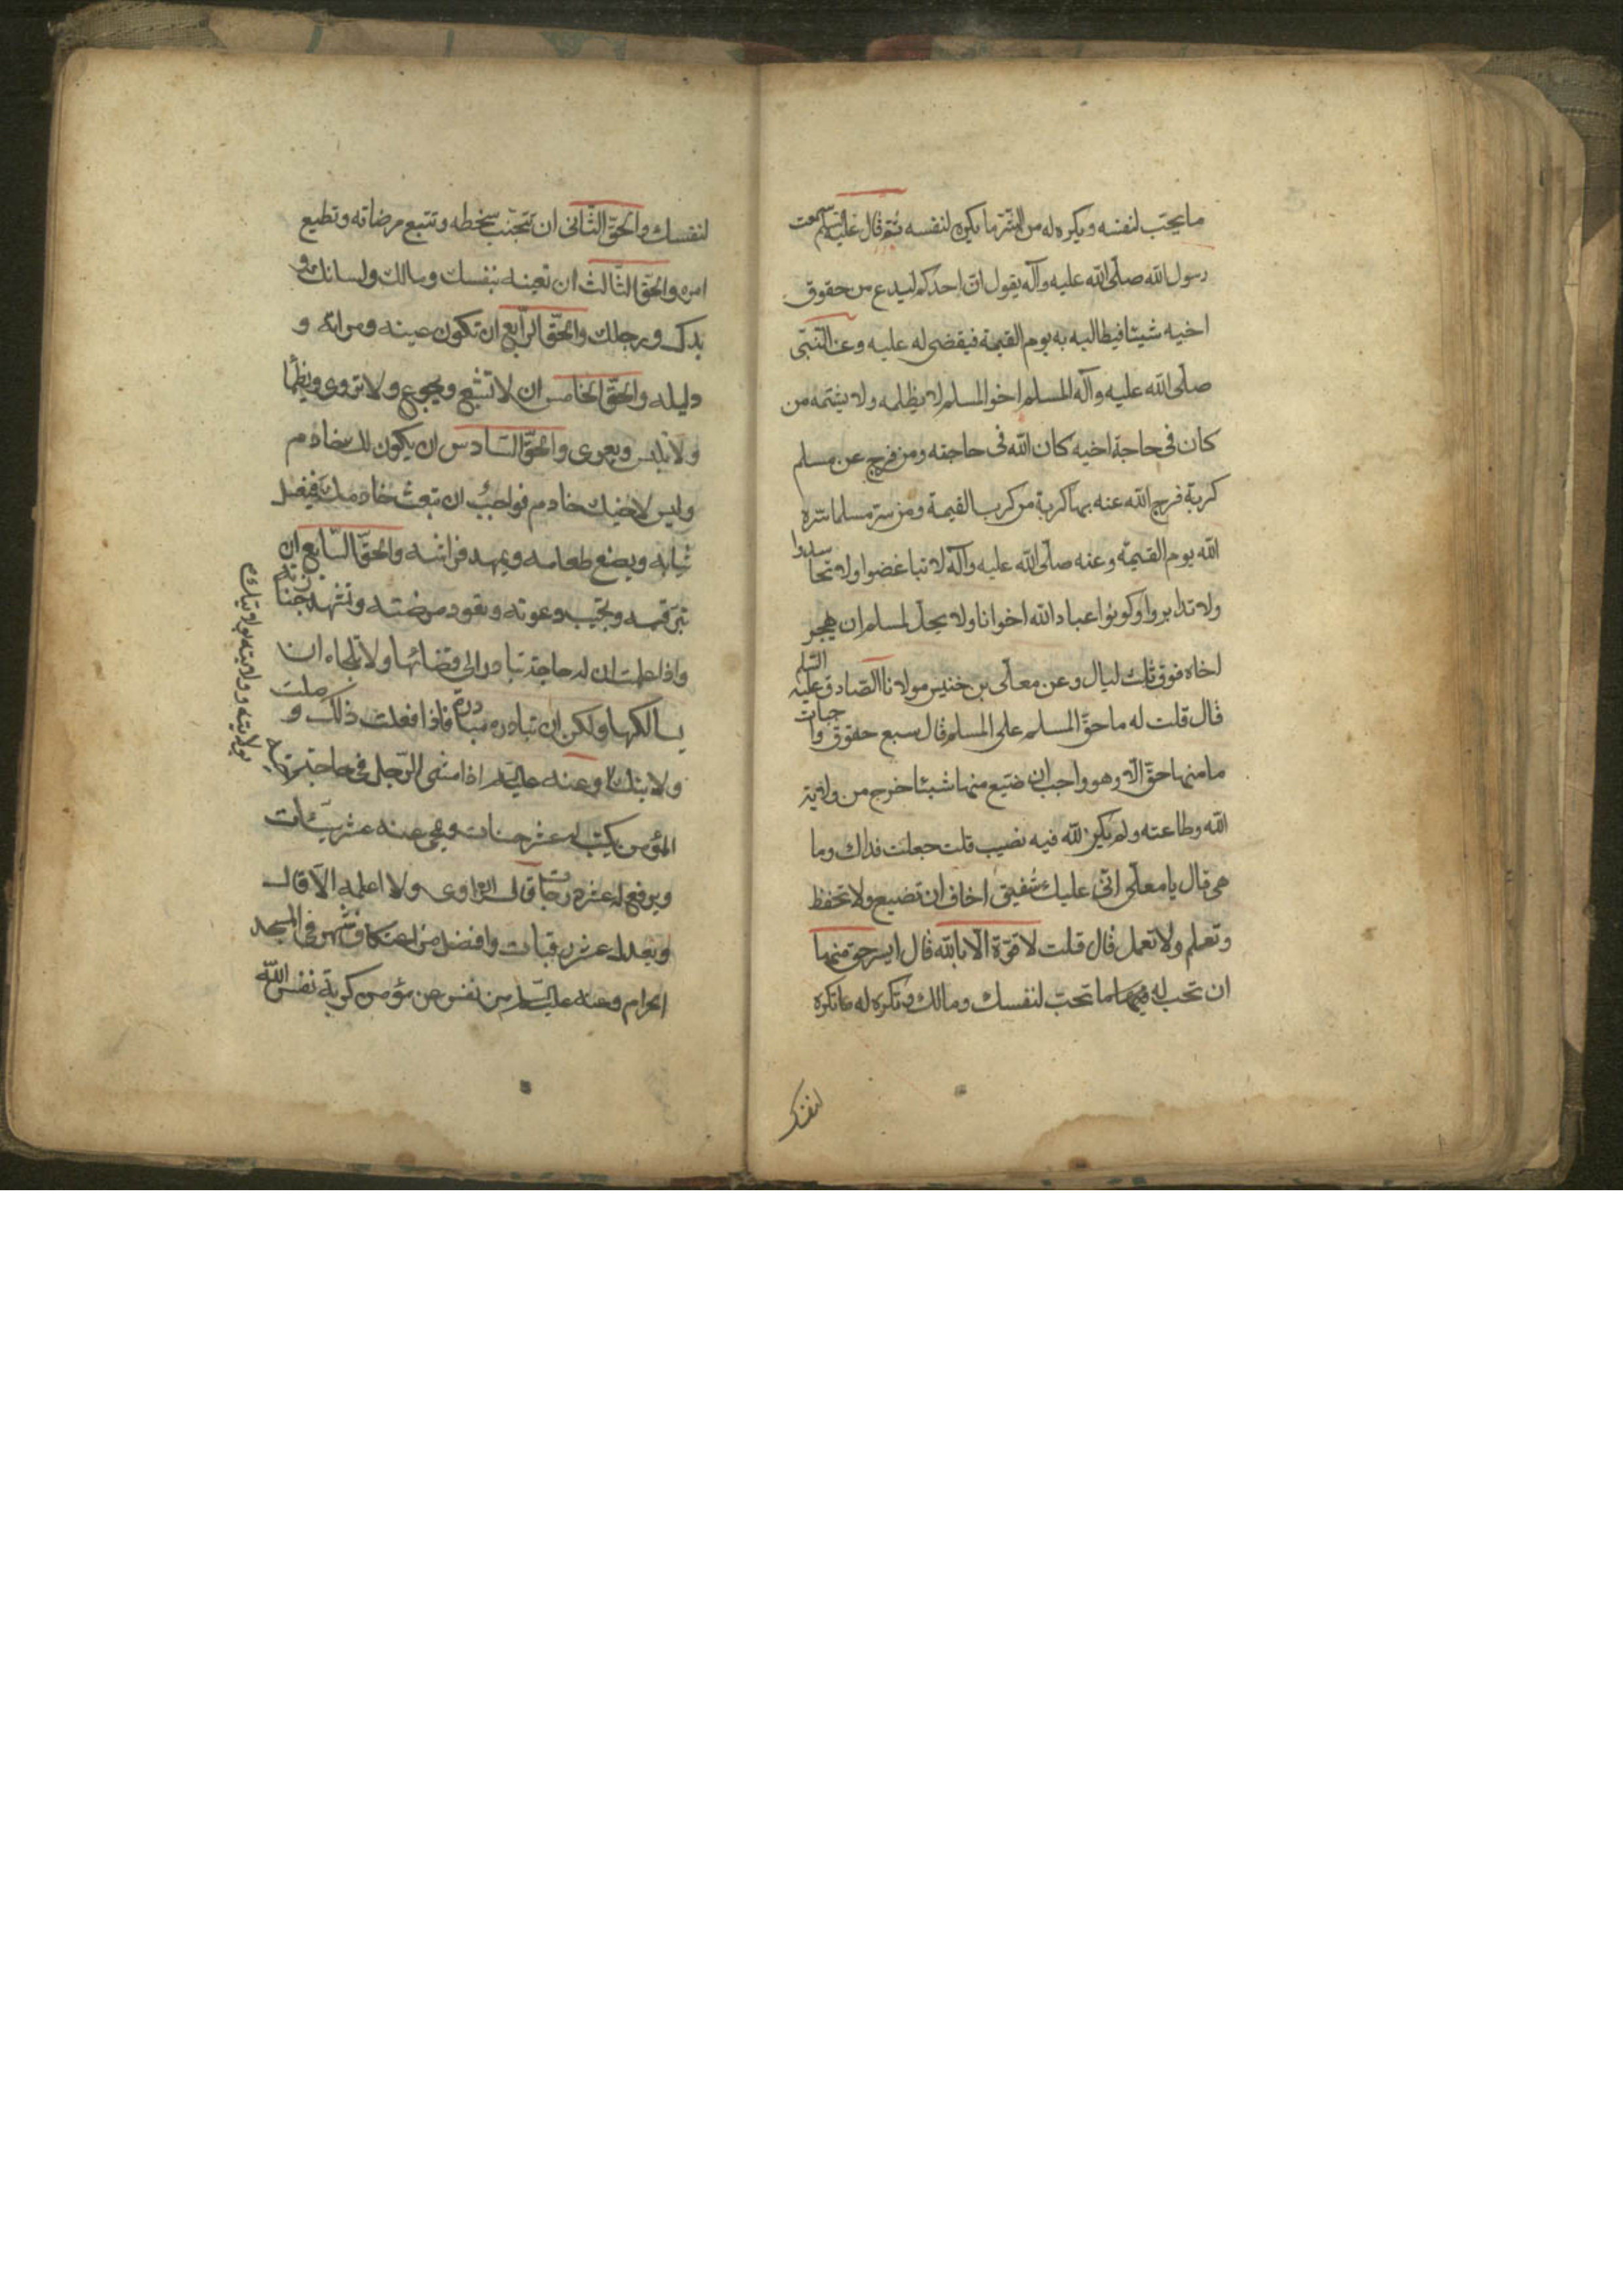 ما يحبّ لنفسه ويكره له من الشرّ ما يكره لنفسه ثم قال عليه السلم سمعت
رسول الله صلّى الله عليه وآله يقول انّ احدكم ليدع من حقوق
اخيه شيئا فيطالبه به يوم القيمة فيقضى له عليه وعن النّبىّ
صلّى الله عليه وآله المسلم اخو المسلم لا يظلمه ولا يشتمه من
كان فى حاجة اخيه كان الله فى حاجته ومن فرج عن مسلم
كربة فرج الله عنه بها كربة من كرب القيمة ومن ستر مسلما ستره
الله يوم القيمة وعنه صلّى الله عليه وآله لا تباغضوا ولا تحاسدوا
ولا تدابروا وكونوا عباد الله اخوانا ولا يحلّ لمسلم ان يهجر
اخاه فوق ثلث ليال وعن معلّى بن خنيس مولانا الصّادق عليه السّلم
قال قلت له ما حقّ المسلم على المسلم قال سبع حقوق واجبات
ما منها حقّ الّا وهو واجب ان ضيّع منها شيئا خرج من ولاية
الله وطاعته ولم يكن لله فيه نصيب قلت جعلت فداك وما
هى قال يا معلّى انّى عليك شفيق اخاف ان تضيع ولا تحفظ
وتعلم ولا تعمل قال قلت لا قوّة الّا بالله قال ايسر حق منها
ان تحب له ما تحبّ لنفسك وتكره له ما تكره
لنفسك
لنفسك والحقّ الثّانى ان تجنّب سخطه وتتبع مرضاته وتطيع
امره والحقّ الثّالث ان تعينه بنفسك ومالك ولسانك و
يدك ورجلك والحقّ الرّابع ان تكون عينه ومراته و
دليله والحقّ الخامس ان لا تشبع ويجوع ولا تروى ويظمأ
ولا تلبس ويعرى والحقّ السّادس ان يكون لك خادم
وليس لاخيك خادم فواجب ان تبعث خادمك فيغسل
ثيابه ويصنع طعامه ويمهد فراشه والحقّ السّابع ان
تبرّ قسمه وتجيب دعوته وتعود مريضه وتشهد جنازته
واذا علمت ان له حاجة تبادر الى قضائها ولا تلجاه ان
يسالكها ولكن ان تبادره مبادرة فاذا فعلت ذلك وصلت
ولايتك وعنه عليه السلم اذا مشى الرّجل فى حاجة اخيه
المؤمن يكتب له عشر حسنات ويمحى عنه عشر سيّئات
ويرفع له عشر درجات قال الرّاوى ولا اعلمه الّا قال
ويعدل عشر رقبات وافضل من اعتكاف شهر فى المسجد
الحرام وعنه عليه السّلم من نفس عن مؤمن كربة نفس الله
بولايته وولايته بولايتك